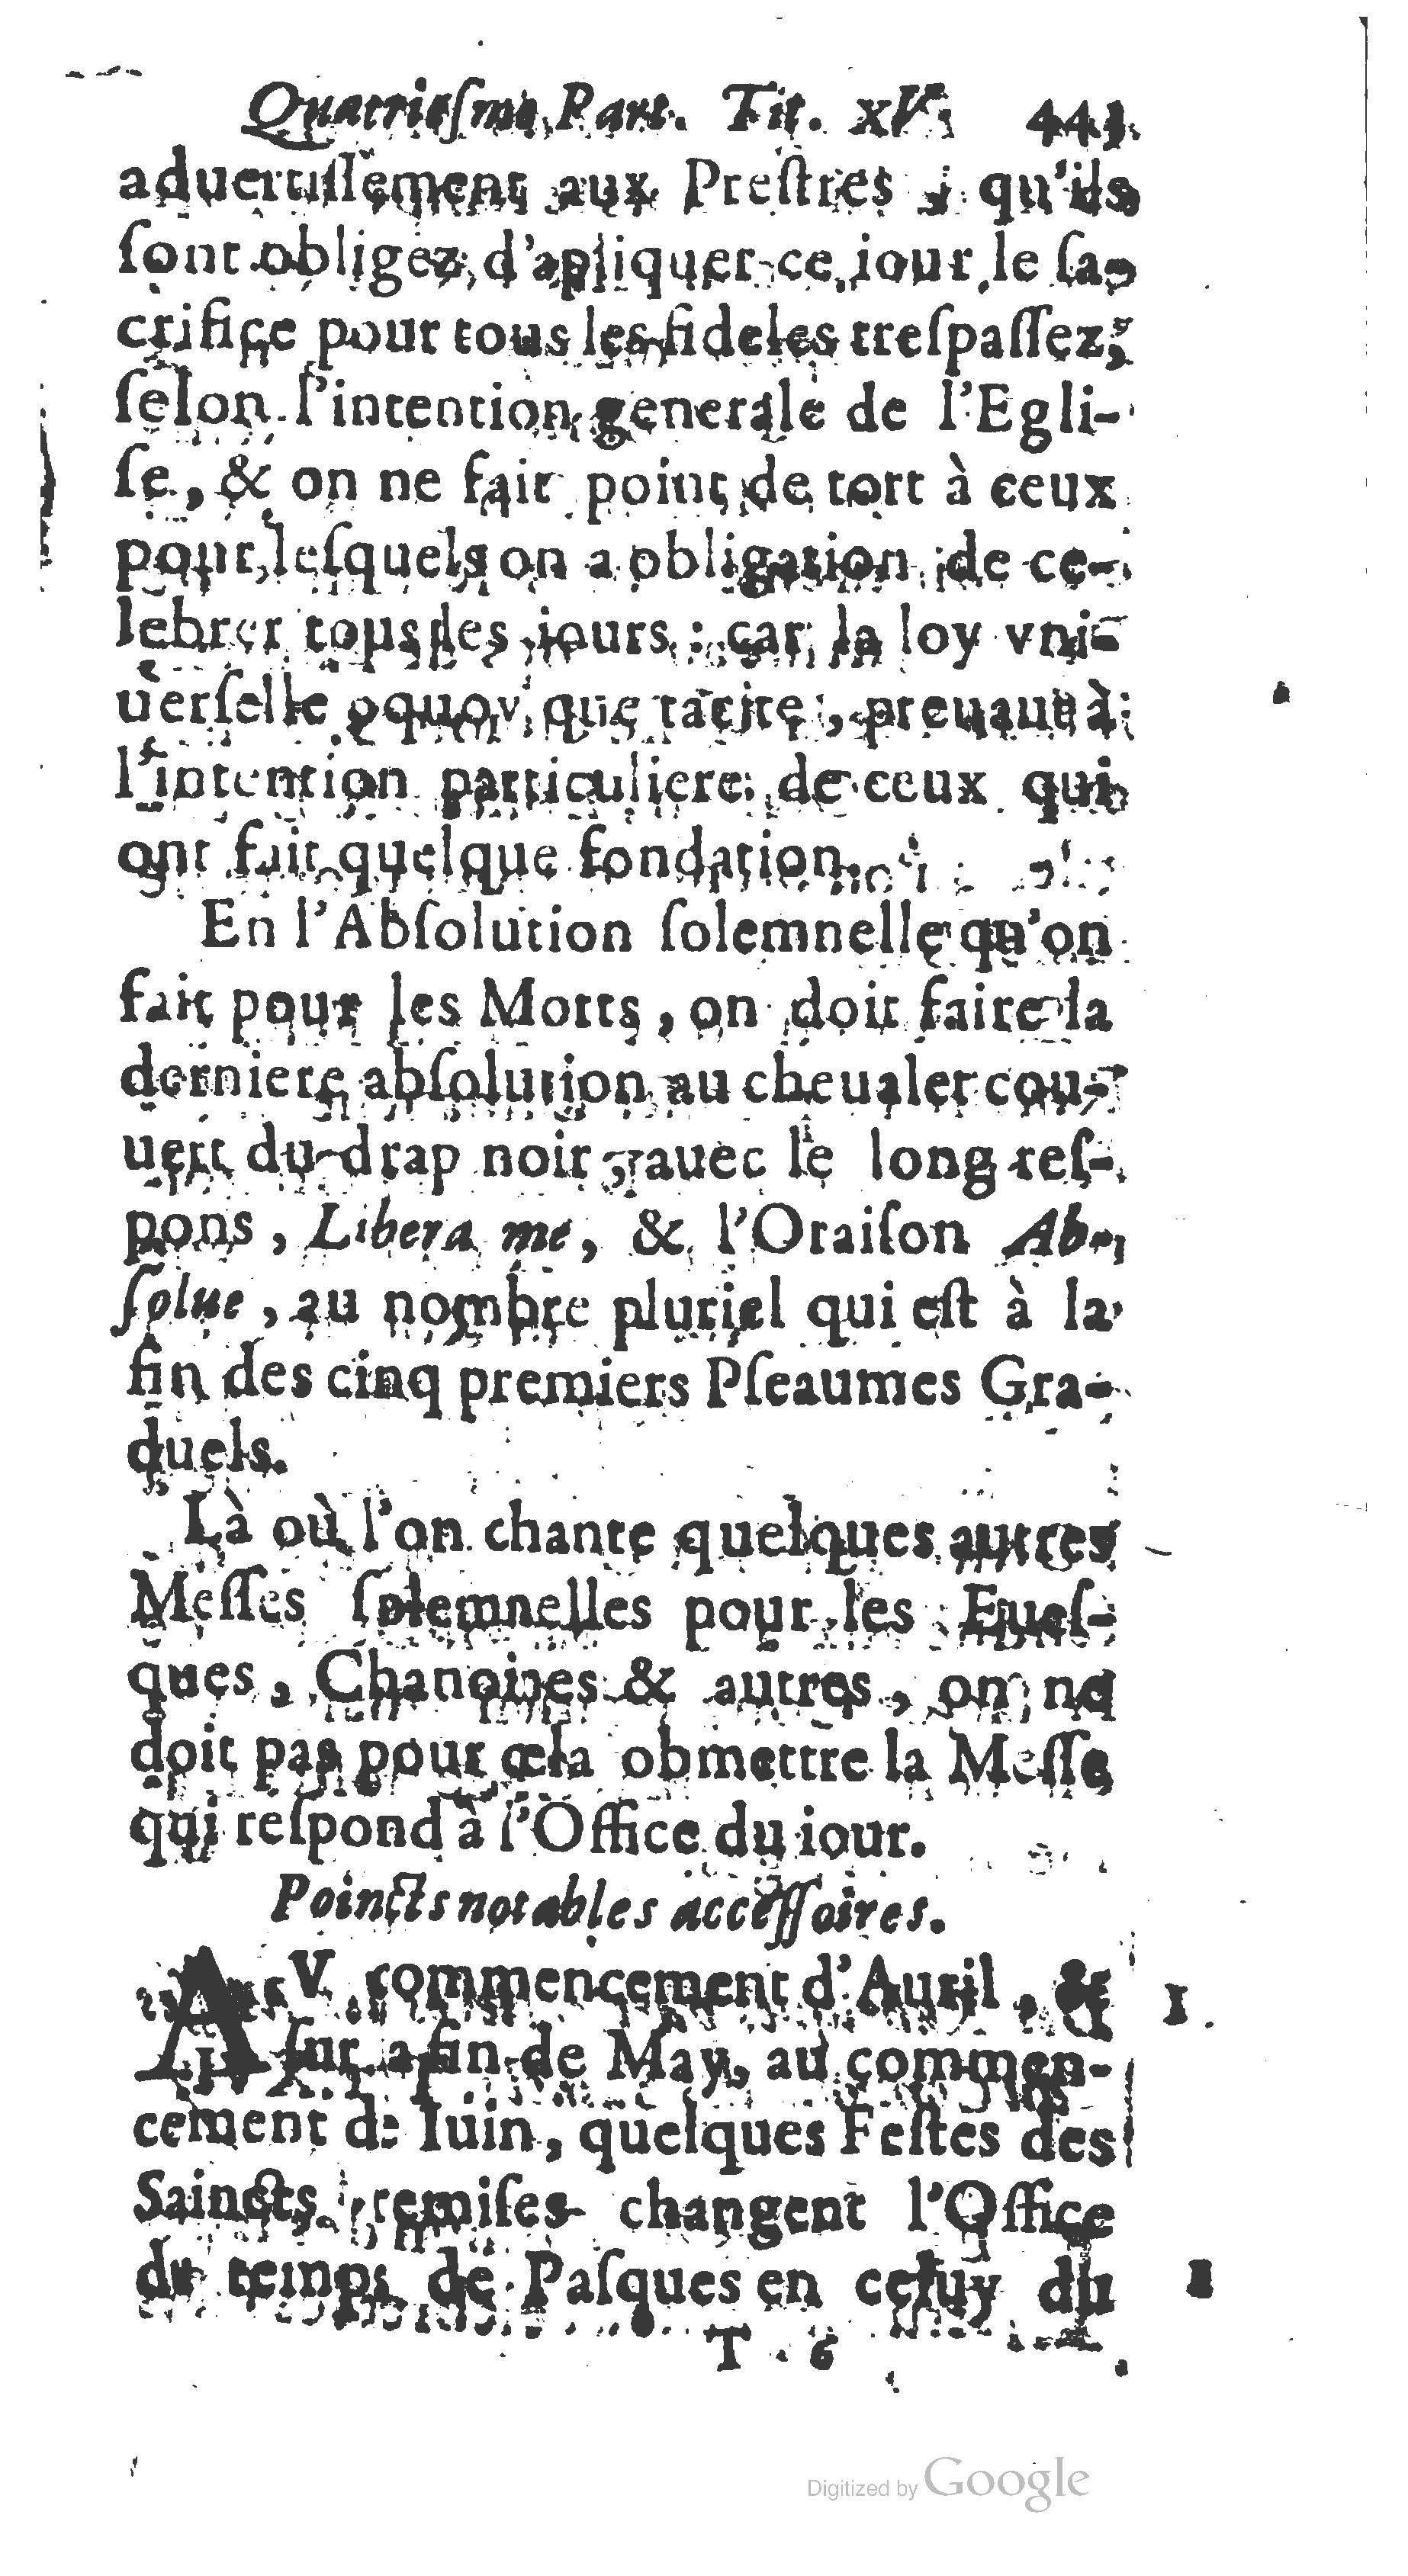 Quatriesme Part. Tit. XV. 441
aduertissement aux Prestres, qu'ils
sont obligez d'apliquer ce iour le sa-
crifice pour tous les fideles trespassez,
selon l'intention generale de l'Egli-
se, & on ne fait point de tort à ceux
pour lesquels on a obligation de ce-
lebrer tous les iours : car la loy vni-
uerselle quoy que tacite, preuaut à
l'intention particuliere de ceux qui
ont fait quelque fondation.
En l'Absolution solemnelle qu'on
fait pour les Morts, on doit faire la
derniere absolution au cheualet cou-
uert du drap noir, auec le long res-
pons, Libera me, & l'Oraison Ab-
solue, au nombre pluriel qui est à la
fin des cinq premiers Pseaumes Gra-
duels.
Là où l'on chante quelques autres
Messes solemnelles pour les Eues-
ques, Chanoines & autres, on ne
doit pas pour cela obmettre la Messe
qui respond à l'Office du iour.
Poincts notables accessoires.
AV commencement d'Auril, & I.
sur la fin de May, au commen-
cement de Iuin, quelques Festes des
Saincts remises changent l'Office
du temps de Pasques en celuy du
T 6
Digitized by Google